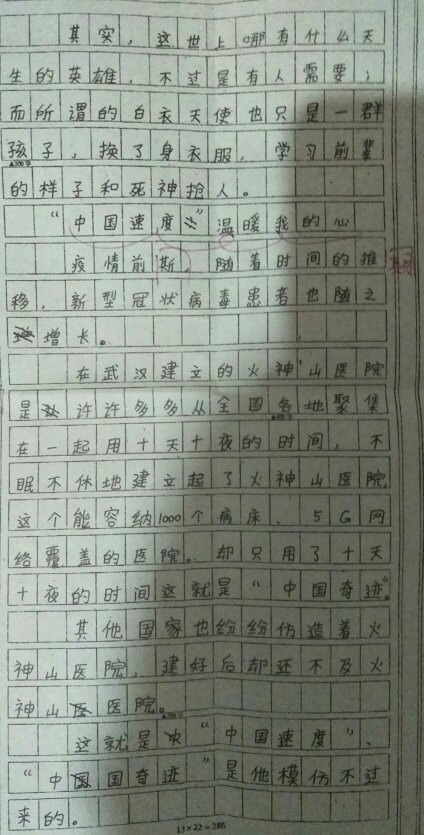 其实，这世上哪有什么天
生的英雄，不过是有人需要；
而所谓的白衣天使也只是一群
孩子，换了身衣服，学习前辈
的样子和死神抢人。
“中国速度”温暖我的心
疫情前斯，随着时间的推
移，新型冠状病毒患者也随之
增长。
在武汉建立的火神山医院
是许许多多从全国各地聚集
在一起用十天十夜的时间，不
眠不休地建立起了火神山医院，
这个能容纳1000个病床、5G网
络覆盖的医院。却只用了十天
十夜的时间这就是“中国奇迹”。
其他国家也纷纷仿造着火
神山医院，建好后却还不及火
神山医院。
这就是“中国速度”、
“中国奇迹”是他模仿不过
来的。
13×22=286